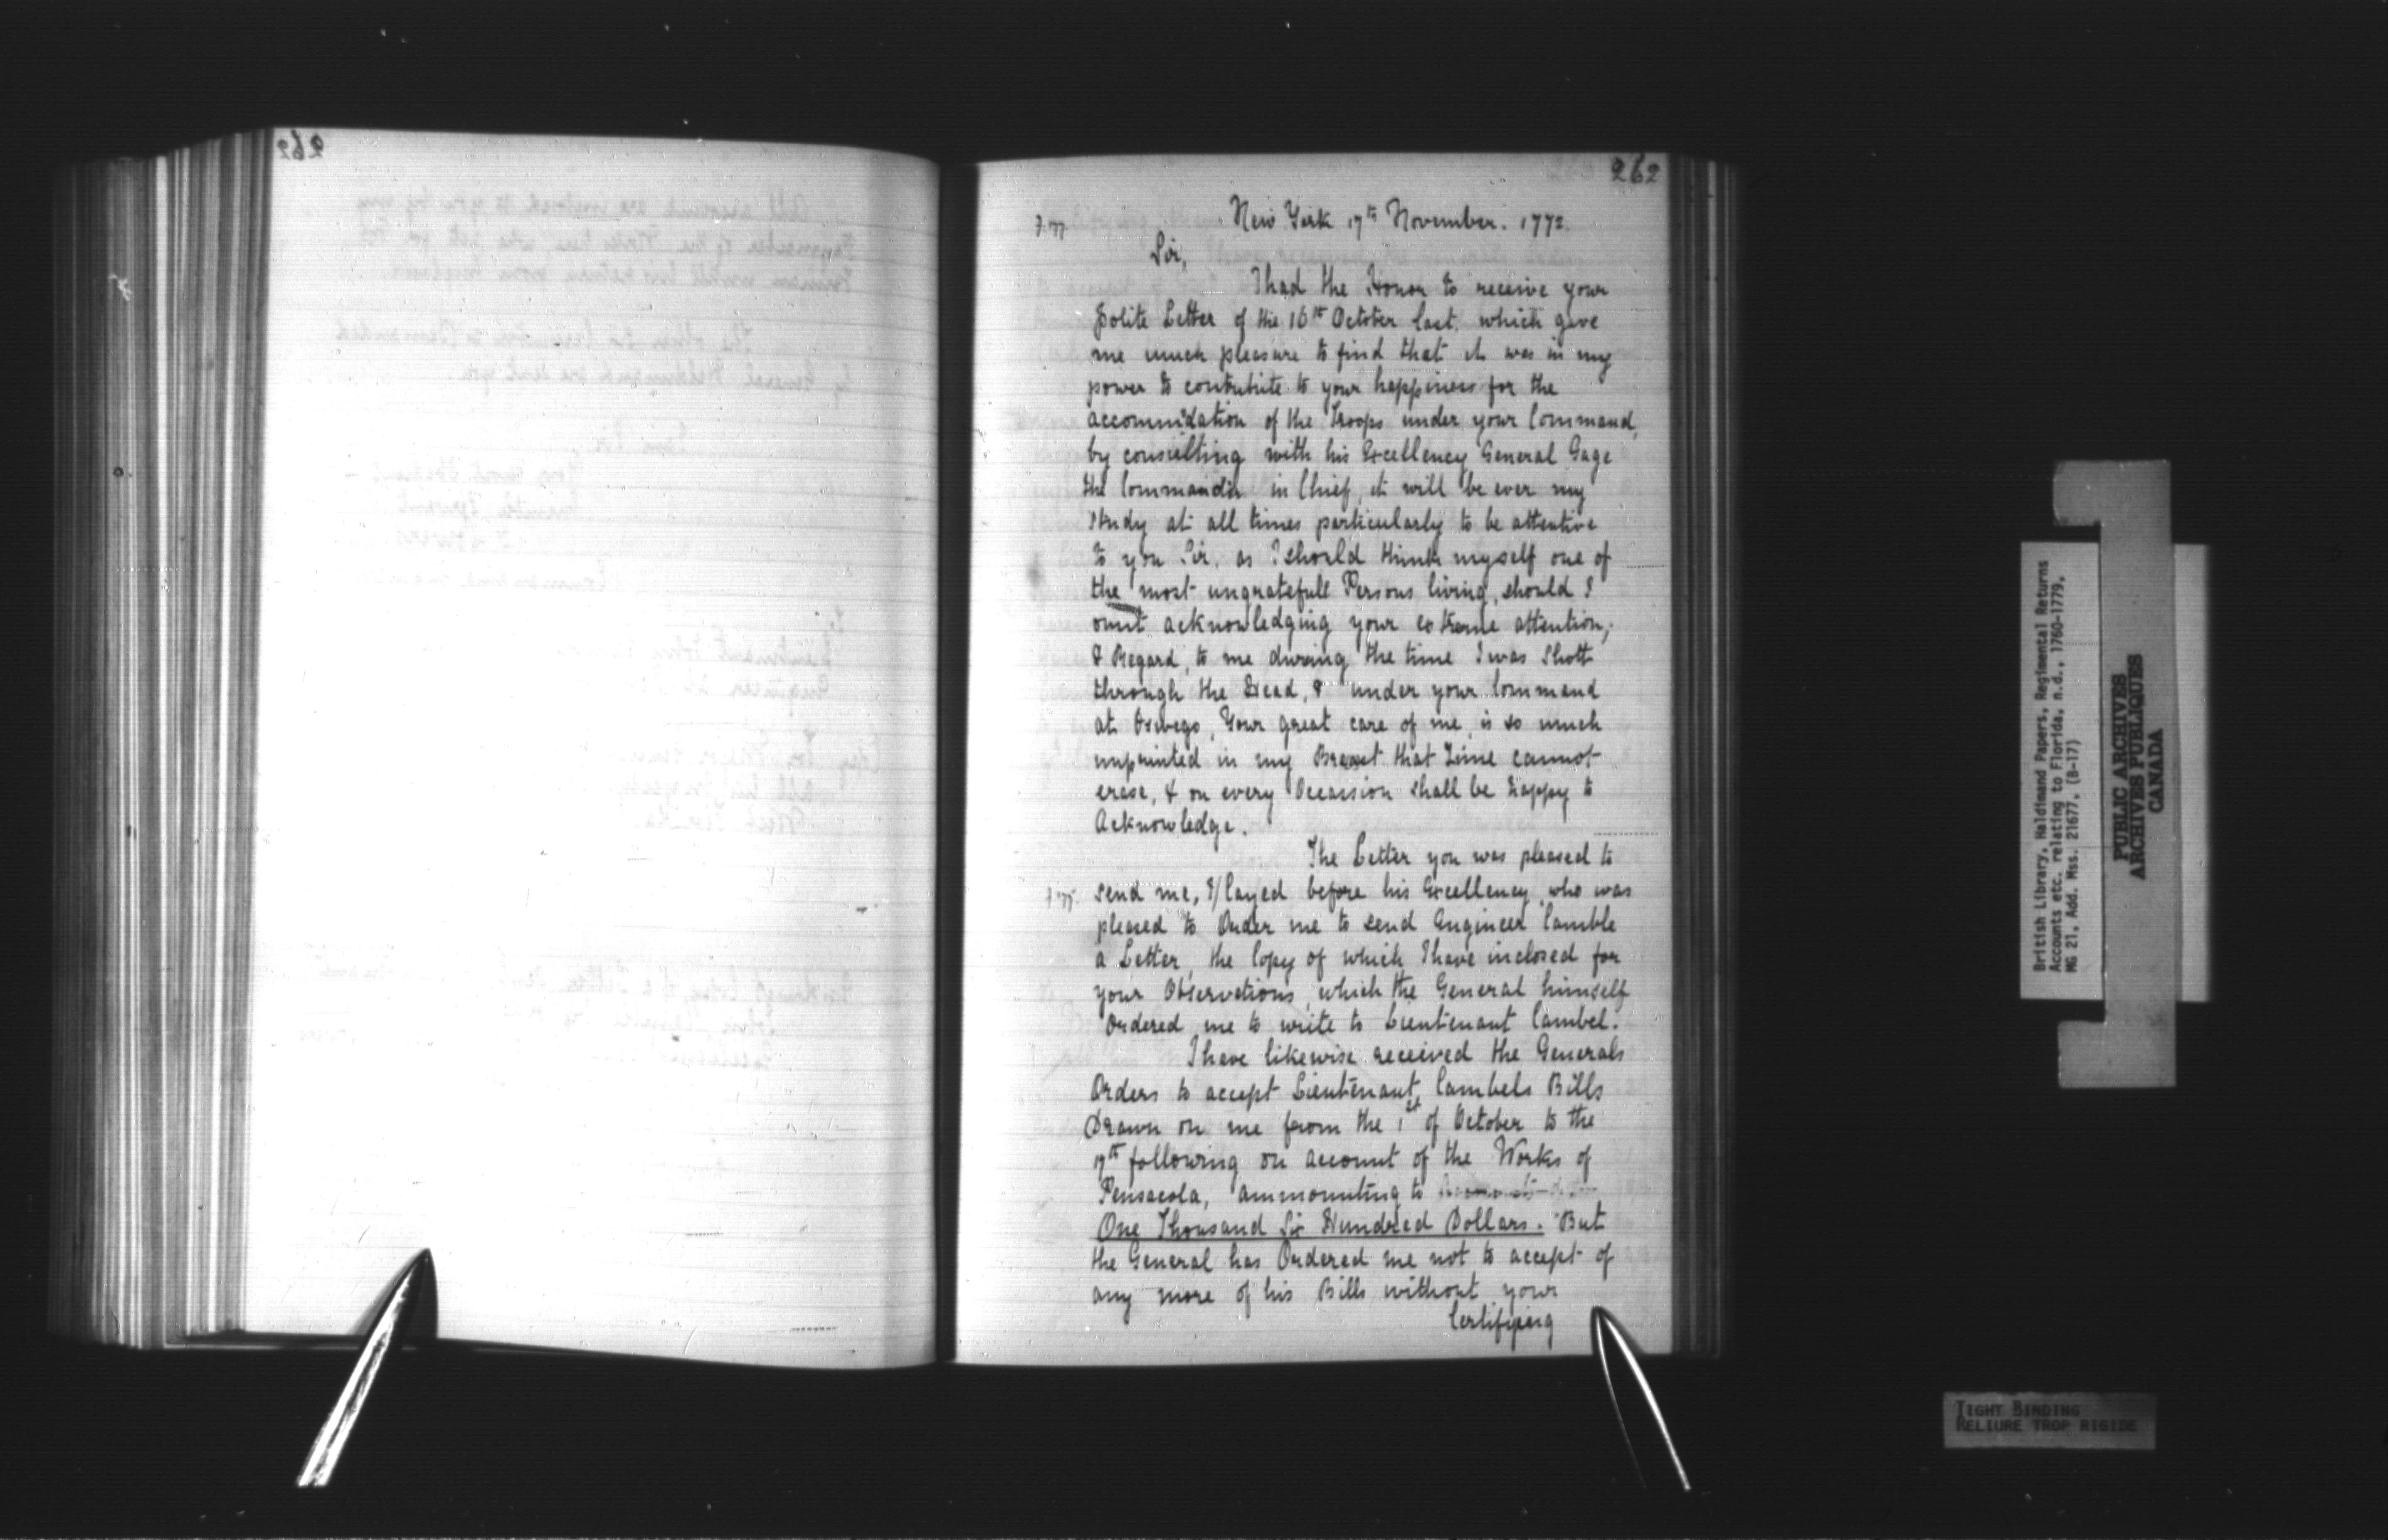 262
New York 17th November. 1772.
Sir,
I had the Honor to receive your
Polite Letter of the 16th October last, which gave
me much pleasure to find that it was in my
power to contribute to your happiness for the
accommodation of the Troops under your Command,
by consulting with his Excellency General Gage
the Commander in Chief, it will be ever my
Study at all times particularly to be attentive
to you Sir, as I should think myself one of
the most ungratefull Persons living, should I
omit acknowledging your extreme attention,
& Regard, to me during the time I was Shott
through the Head, & under your Command
at Oswego, Your great care of me, is so much
imprinted in my Breast that Time cannot
erase, & on every Occassion shall be happy to
Acknowledge.
The Letter you was pleased to
send me, I/layed before his Excellency who was
pleased to Order me to send Engineer Camble
a Letter, the Copy of which I have inclosed for
your Observations, which the General himself
Ordered me to write to Lieutenant Cambel.
I have likewise received the Generals
Orders to accept Lieutenant Cambels Bills
Drawn on me from the 1st of October to the
17th following on account of the Works of
Pensacola, ammounting to
One Thousand Six Hundred Dollars. But
the General has Ordered me not to accept of
any more of his Bills without your
Certifying
British Library, Haldimand Papers, Regimental Returns
Accounts etc. relating to Florida, n.d., 1760-1779,
MG 21, Add. Mss. 21677, (B-17)
PUBLIC ARCHIVES
ARCHIVES PUBLIQUES
CANADA
TIGHT BINDING
RELIURE TROP RIGIDE